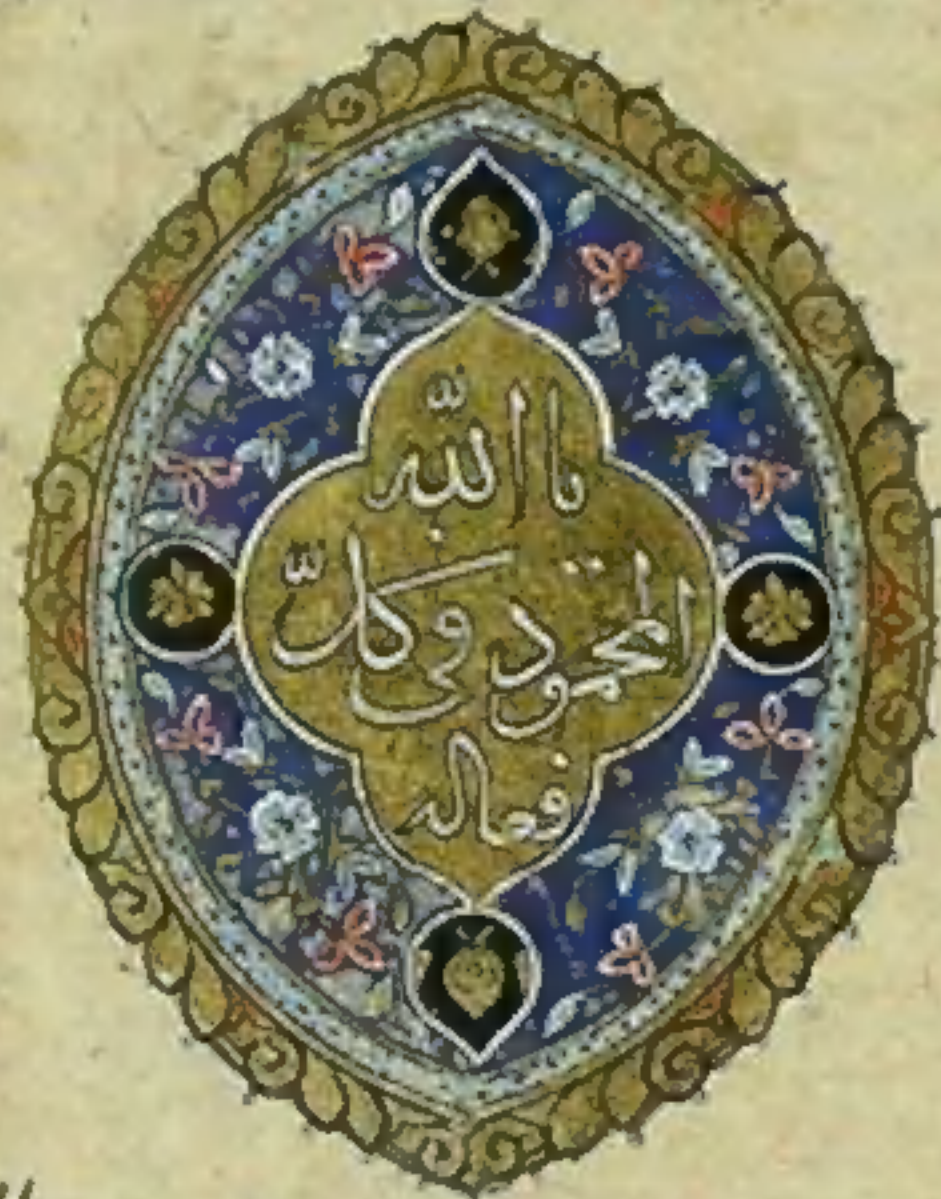 يا الله
المحمود فى كلّ
فعاله